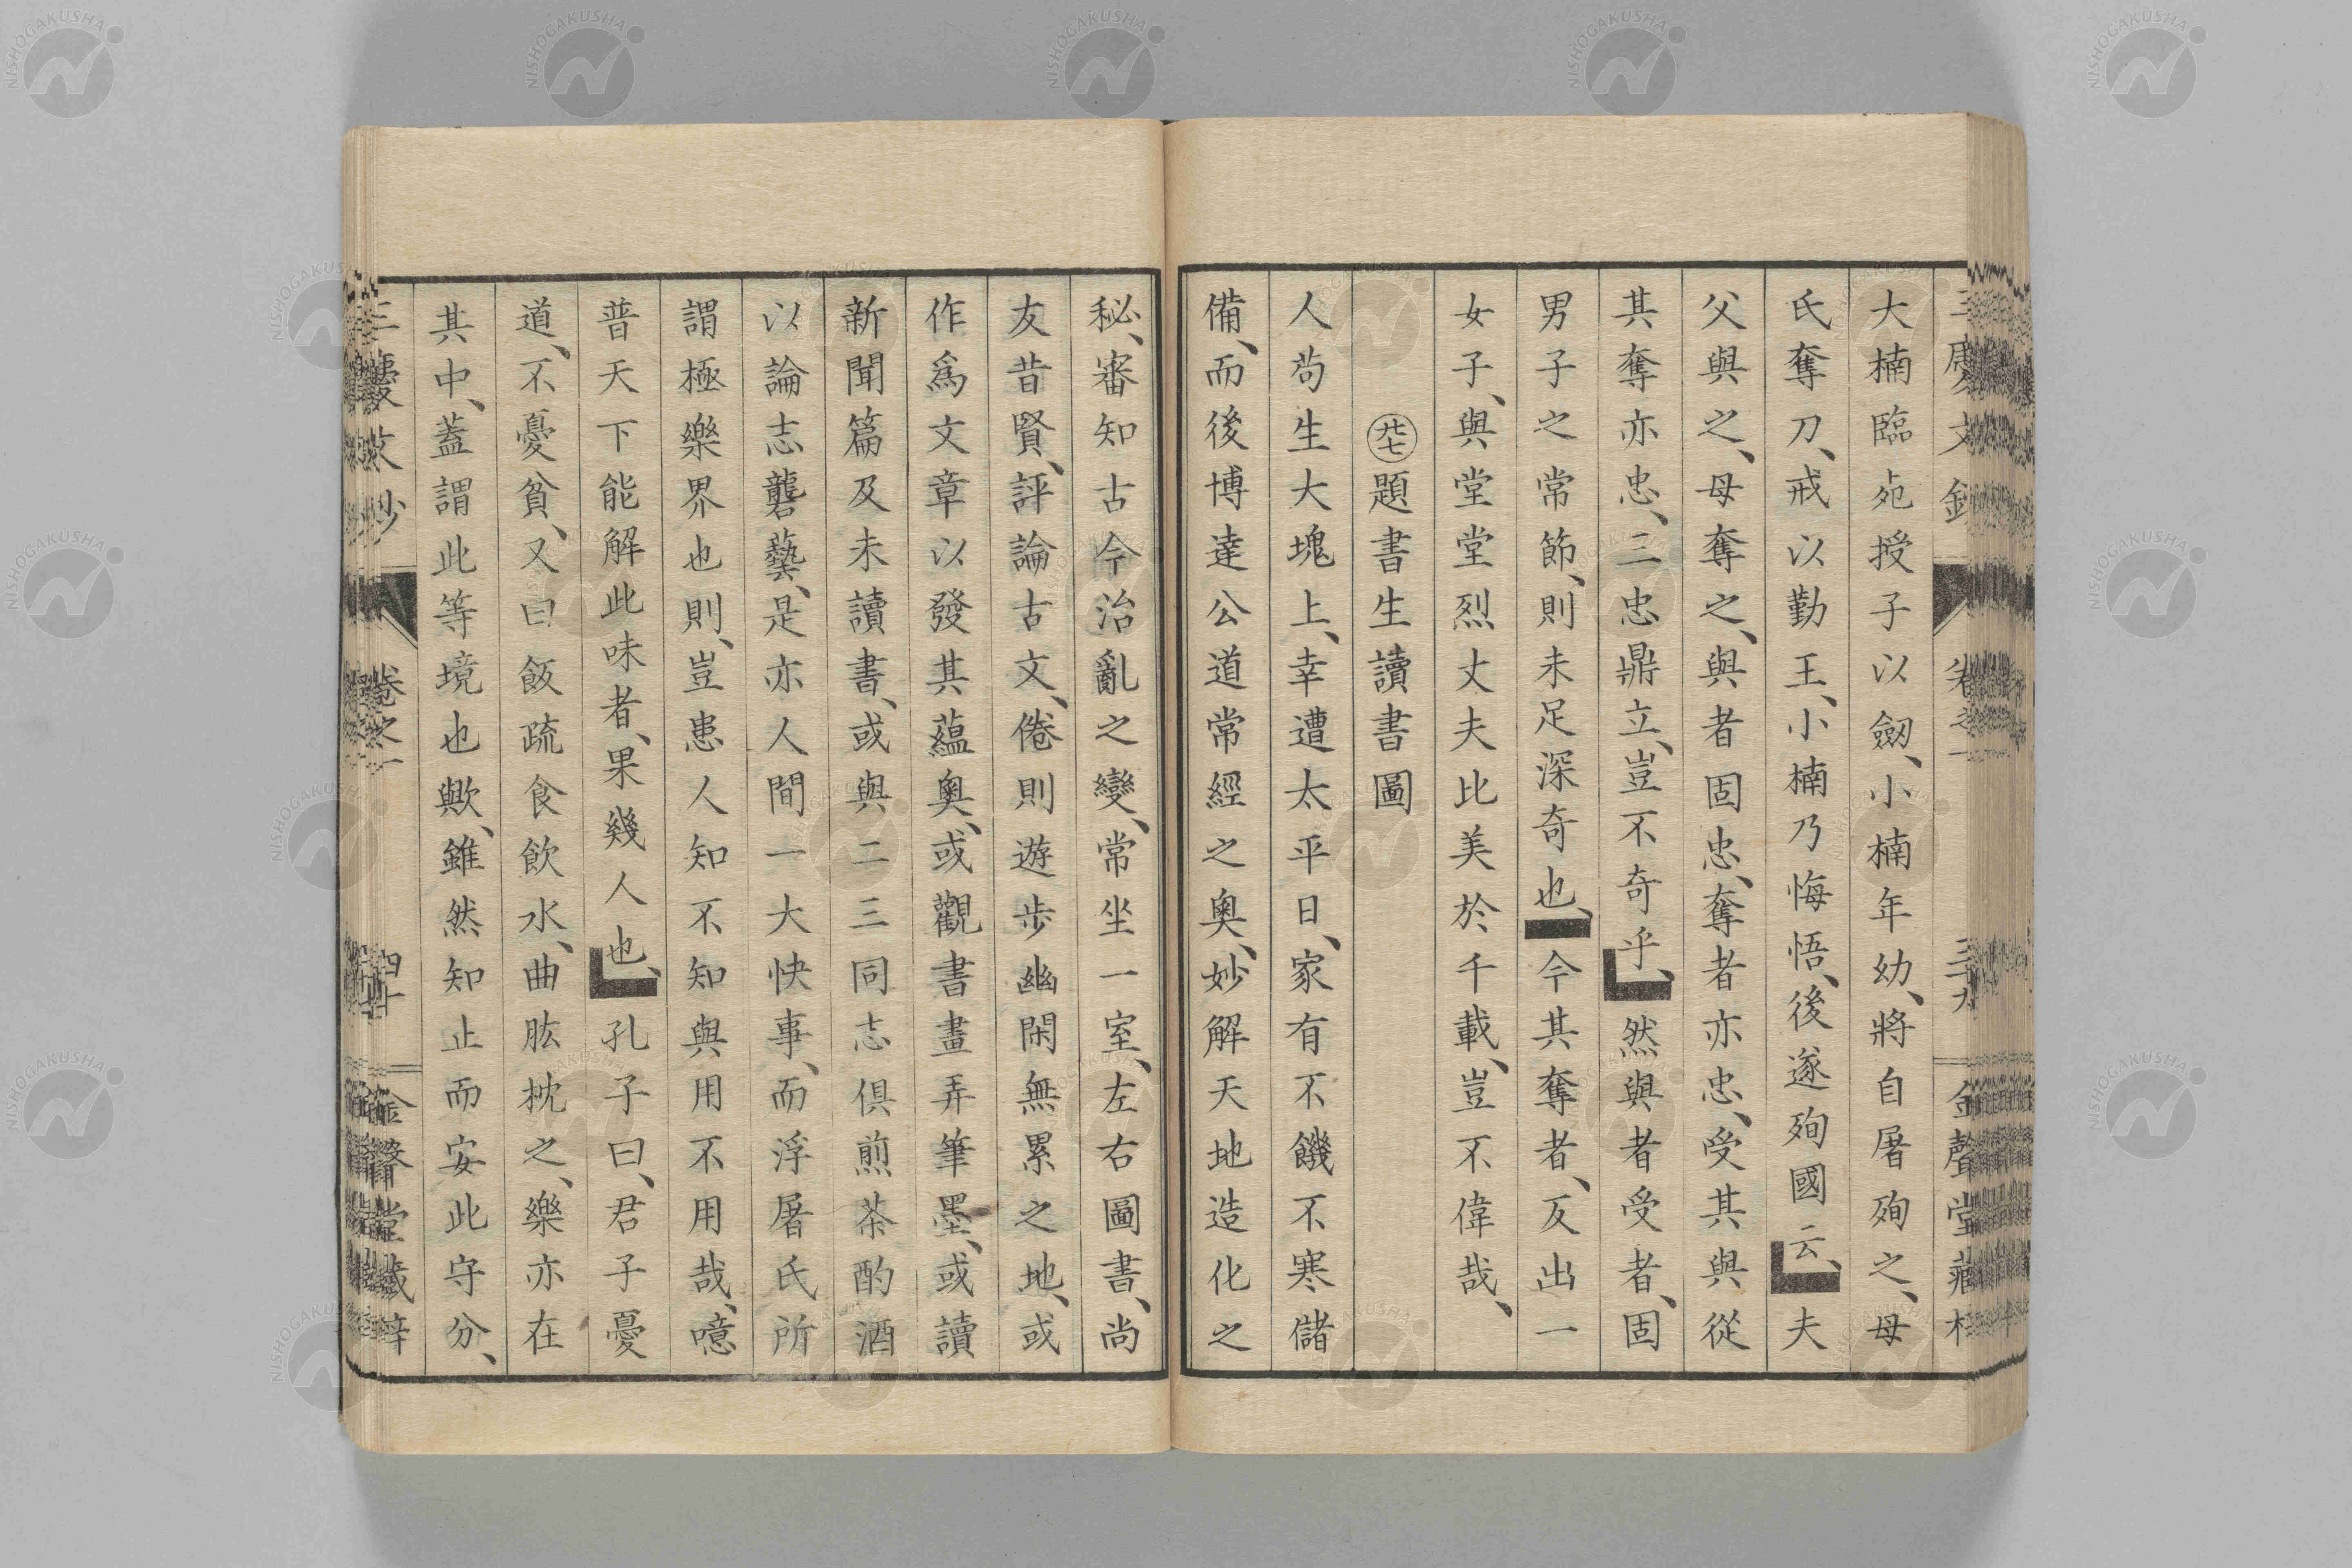 大楠臨死授子以劔、小楠年幼、將自屠殉之、母
氏奪刀、戒以勤王、小楠乃悔悟、後遂殉國云、夫
父與之、母奪之、與者固忠、奪者亦忠、受其與從
其奪亦忠、三忠鼎立、豈不奇乎、然與者受者、固
男子之常節、則未足深奇也、今其奪者、反出一
女子、與堂堂烈丈夫比美於千載、豈不偉哉、
㊲題書生讀書圖
人苟生大塊上、幸遭太平日、家有不饑不寒儲
備、而後博達公道常經之奧、妙解天地造化之
秘、審知古今治亂之變、常坐一室、左右圖書、尚
友昔賢、評論古文、倦則遊步幽閑無累之地、或
作爲文章以發其蘊奧、或觀書畫弄筆墨、或讀
新聞篇及未讀書、或與二三同志俱煎茶酌酒
以論志礱藝、是亦人間一大快事、而浮屠氏所
謂極樂界也則、豈患人知不知與用不用哉、噫
普天下能解此味者、果幾人也、孔子曰、君子憂
道、不憂貧、又曰飯疏食飲水、曲肱枕之、樂亦在
其中、蓋謂此等境也歟、雖然知止而安此守分、
卷之一
四十
金聲堂藏梓
NISHOGAKUSHA